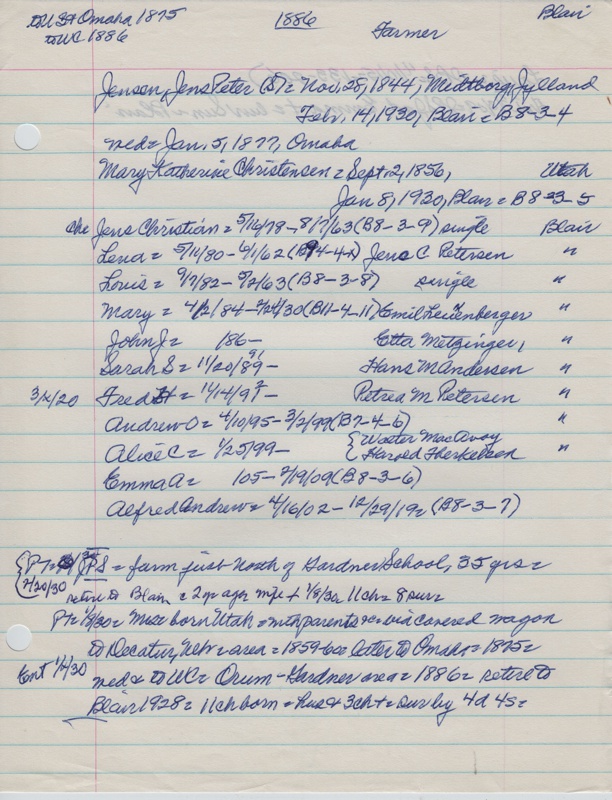 to US & Omaha 1875 1886 Blair
to WC 1886 Farmer
Jensen, Jens Peter (S) = Nov. 28, 1844, Midtborg, Jylland
Febr. 14, 1930, Blair = B8-3-4
med = Jan. 5, 1877, Omaha
Mary Katherine Christensen = Sept. 2, 1856, Utah
Jan 8, 1930, Blair = B8-3-5
Jens Christian = 5/16/78 - 8/7/63 (B8-3-9) single Blair
Lena = 5/14/80 - 6/1/62 Jens C Petersen "
Louis = 9/7/82 - 5/2/63 (B8-3-8) single "
Mary = 4/2/84 - 2/24/30 (B11-4-11) Emil Leuenberger "
John J = 186- Etta Metzinger, "
Sarah S = 11/20/89- Hans M Andersen "
3/12/20 Fred = 11/14/92 - Petrea M Petersen "
Andrew O = 4/10/95 - 3/2/99 (B7-4-6) "
Alice C = 1/25/99 - { Walter MacAvoy
Harold Therkelsen "
Emma A = 105 - 2/19/09 (B8-3-6)
Alfred Andrew = 4/16/02 - 12/29/19 = (B8-3-7)
JPS = farm just North of Gardner School, 35 yrs =
2/20/30 retire to Blair = 2 yr ago wife + 1/8/30 = 11 ch = 8 surv
PT = 1/8/30 = Mrs = born Utah = with parents = via covered wagon
to Decatur, Nebr = area = 1859-60 = later to Omaha = 1875 =
Ent 1/9/30 med & to WC = Orum - Gardner area = 1886 = retire to
Blair 1928 = 11 ch born = hus & 3 ch + = sur by 4d 4s =